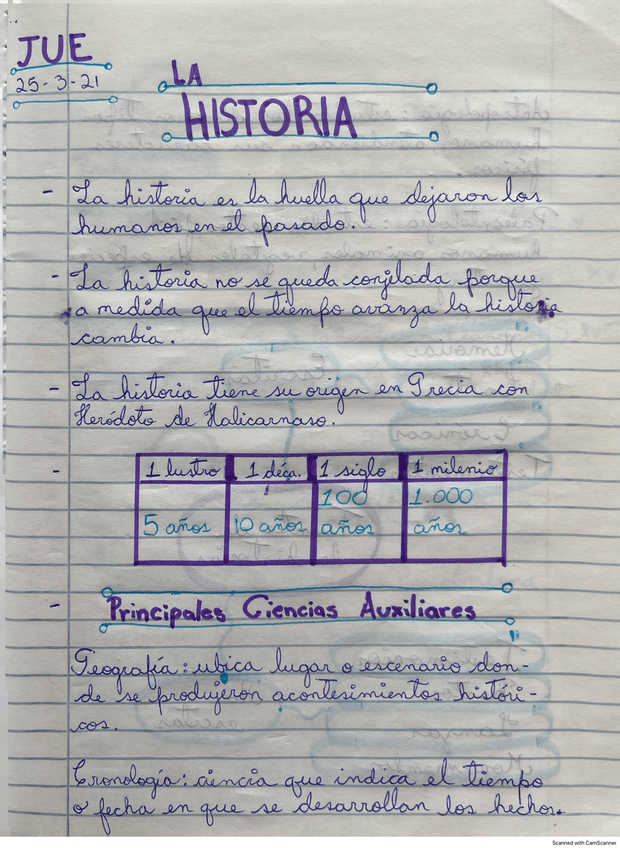 JUE
25-3-21
LA
HISTORIA
- La historia es la huella que dejaron los
humanos en el pasado.
- La historia no se queda conjelada porque
a medida que el tiempo avanza la historia
cambia.
- La historia tiene su origen en Grecia con
Heródoto de Halicarnaso.
- 1 lustro 1 déca. 1 siglo 1 milenio
5 años 10 años 100 años 1.000 años
- Principales Ciencias Auxiliares
Geografía: ubica lugar o escenario don-
de se produjeron acontesimientos históri-
cos.
Cronología: ciencia que indica el tiempo
o fecha en que se desarrollan los hechos.
Scanned with CamScanner